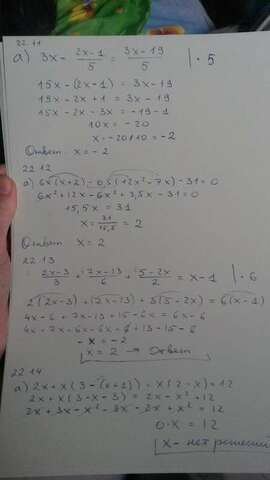 22.11
а) 3x - (2x-1)/5 = (3x-19)/5 | · 5
15x - (2x-1) = 3x - 19
15x - 2x + 1 = 3x - 19
15x - 2x - 3x = -19 - 1
10x = -20
x = -20/10 = -2
Ответ x = -2
22.12
а) 6x(x+2) - 0,5(12x² - 7x) - 31 = 0
6x² + 12x - 6x² + 3,5x - 31 = 0
15,5x = 31
x = 31/15,5 = 2
Ответ x = 2
22.13
(2x-3)/3 + (7x-13)/6 + (5-2x)/2 = x - 1 | · 6
2(2x-3) + (7x-13) + 3(5-2x) = 6(x-1)
4x - 6 + 7x - 13 + 15 - 6x = 6x - 6
4x + 7x - 6x - 6x = 6 + 13 - 15 - 6
-x = -2
x = 2 → Ответ
22.14
а) 2x + x(3-(x+1)) = x(2-x) + 12
2x + x(3-x-3) = 2x - x² + 12
2x + 3x - x² - 3x - 2x + x² = 12
0·x = 12
x - нет решений